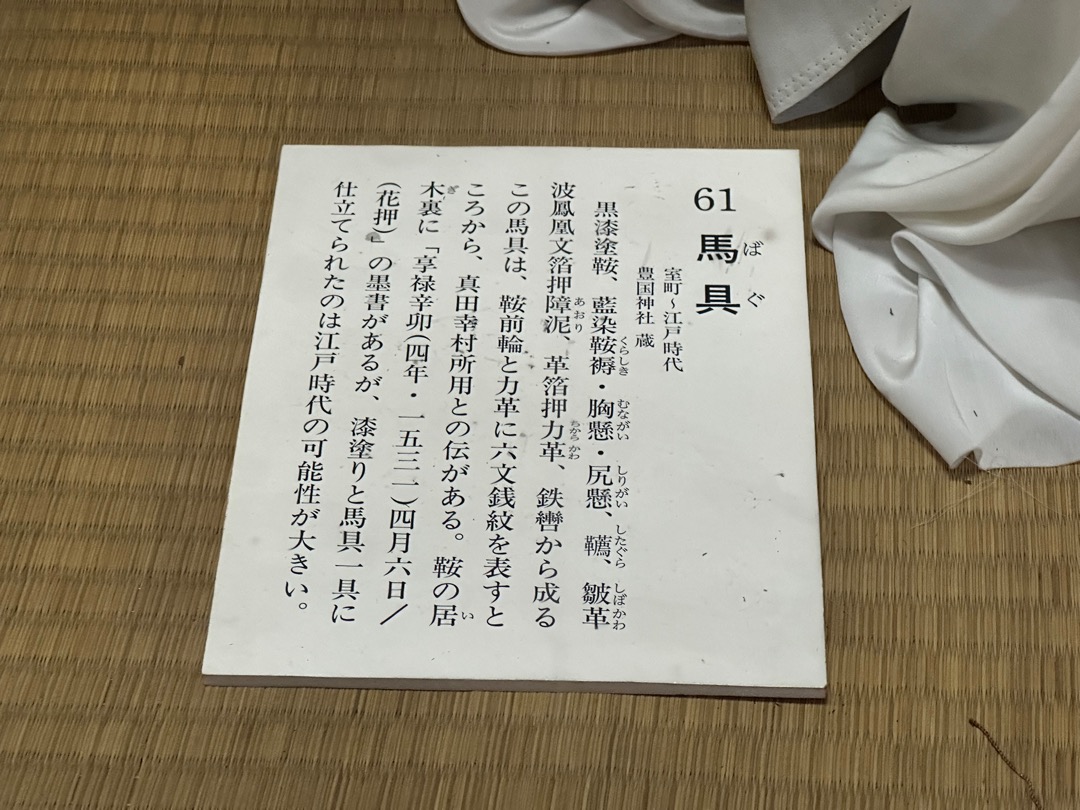 61 馬具
ばぐ
室町～江戸時代
豊国神社 蔵
黒漆塗鞍、藍染鞍褥・胸懸・尻懸、韉、皺革
くらしき むながい しりがい したぐら しぼかわ
波鳳凰文箔押障泥、革箔押力革、鉄轡から成る
あおり ちからかわ
この馬具は、鞍前輪と力革に六文銭紋を表すと
ころから、真田幸村所用との伝がある。鞍の居
い
木裏に「享禄辛卯(四年・一五三一)四月六日／
ぎ
(花押)」の墨書があるが、漆塗りと馬具一具に
仕立てられたのは江戸時代の可能性が大きい。